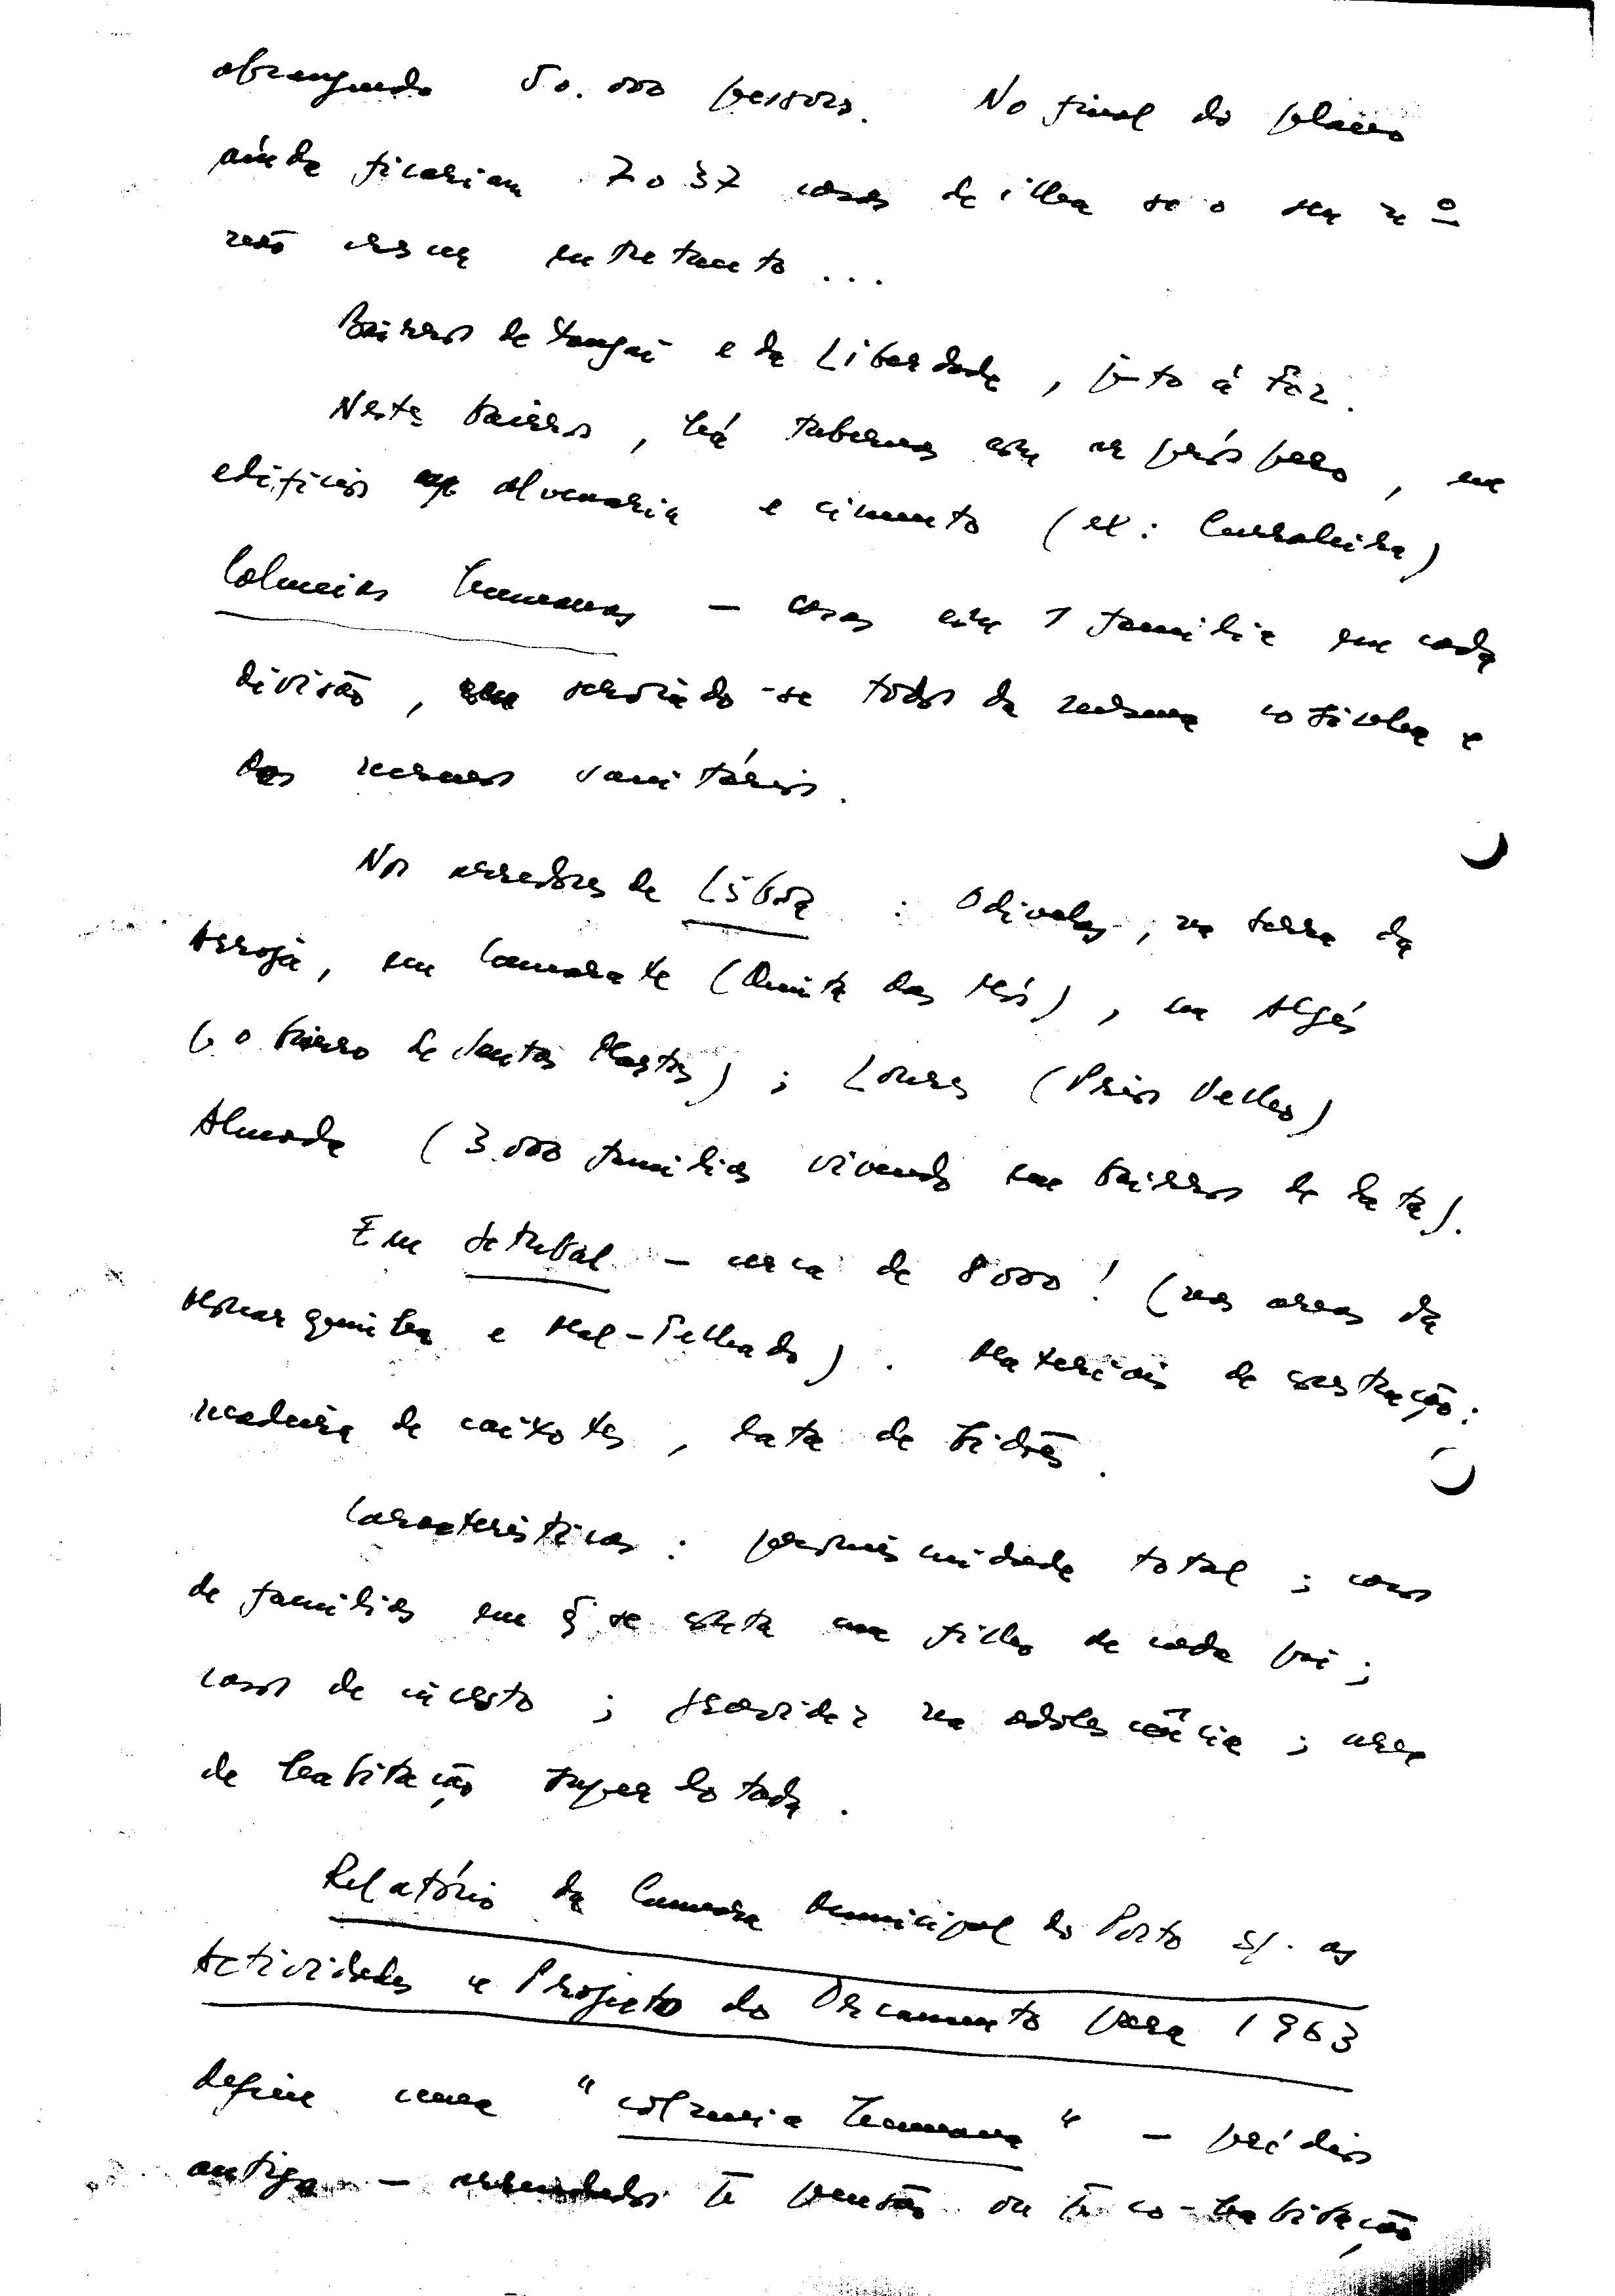 abrangendo 50.000 pessoas. No final do plano
ainda ficariam 7037 casas de ilha se o seu nº
não cresce entretanto...
Bairros de Xangai e da Liberdade, junto à Foz.
Neste bairro, há tabernas com ar próspero, em
edifícios de alvenaria e cimento (ex: Curraleira)
Colmeias humanas — casas com 1 família em cada
divisão, servindo-se todos da mesma cozinha e
dos mesmos sanitários.
Nos arredores de Lisboa: Odivelas, na serra da
Arroja, em Camarate (Quinta das Mós), em Algés
(o bairro de Santas Martas); Loures (Prior Velho)
Almada (3.000 famílias vivendo em bairros de lata).
Em Setubal — cerca de 8000! (nas areas da
Monarquinha e Mal-Talhado). Materiais de construção:
madeira de caixotes, lata de bidões.
Caracteristicas: promiscuidade total; casos
de familias em q̃ se conta um filho de cada pai;
casos de incesto; gravidez na adolescência;
de habitação superlotada.
Relatório da Camara Municipal do Porto s/. as
Actividades e Projeto do Orcamento para 1963
define uma "colmeia humana" — prédios
antigos — arrendados p̃ pensão ou p̃ co-habitação